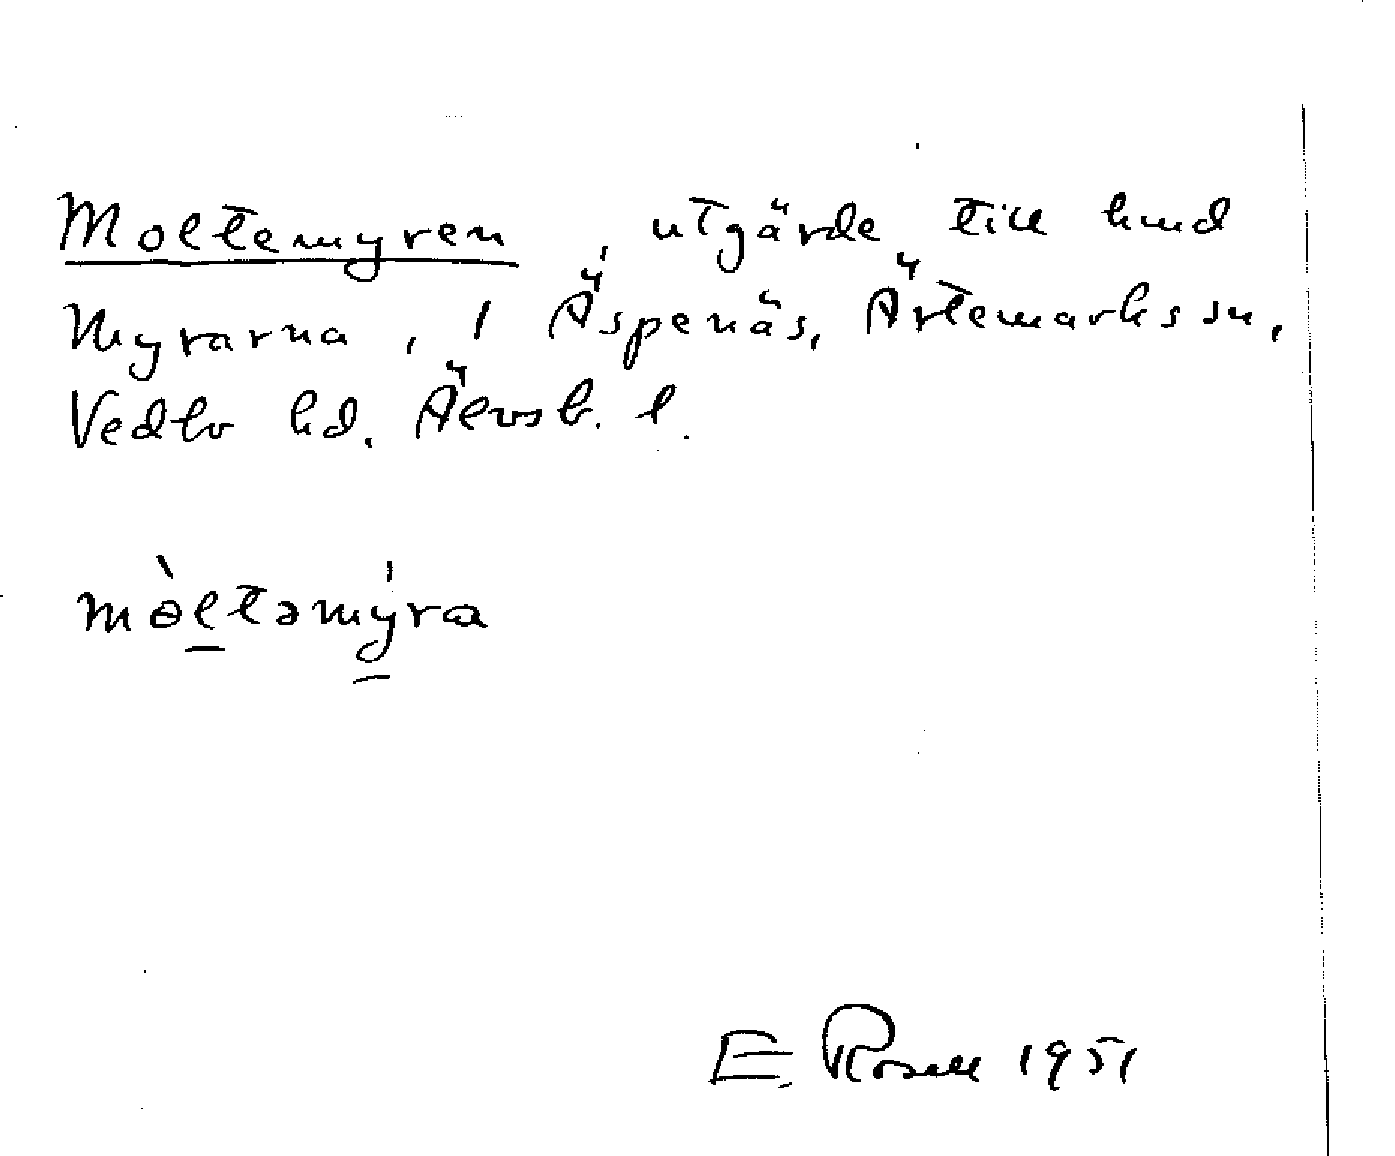 Moltemyren, utgärde till hmd
Myrarna, 1 Äspenäs, Ärtemarks sn,
Vedbo hd. Älvsb. l.
mòltəmýra
E. Rosell 1951